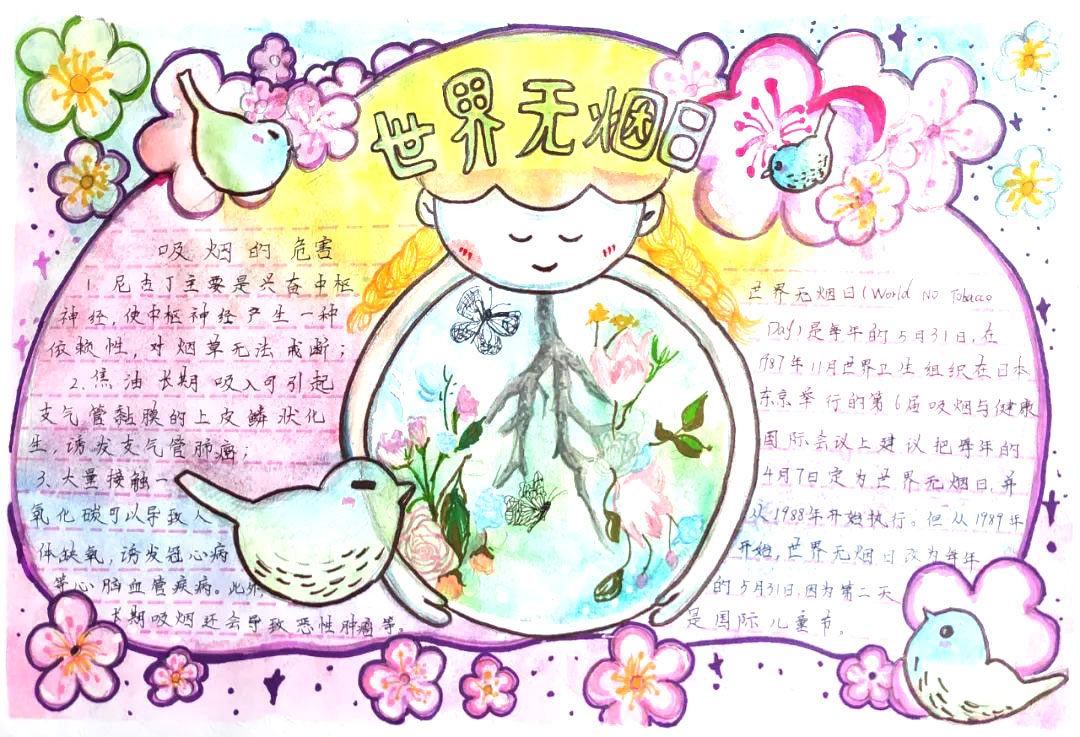 世界无烟日
吸烟的危害
1. 尼古丁主要是兴奋中枢
神经，使中枢神经产生一种
依赖性，对烟草无法戒断；
2. 焦油长期吸入可引起
支气管黏膜的上皮鳞状化
生，诱发支气管肺癌；
3、大量接触一
氧化碳可以导致人
体缺氧，诱发冠心病
等心脑血管疾病。此外，
长期吸烟还会导致恶性肿瘤等。
世界无烟日(World No Tobacco
Day)是每年的5月31日，在
1987年11月世界卫生组织在日本
东京举行的第6届吸烟与健康
国际会议上建议把每年的
4月7日定为世界无烟日，并
从1988年开始执行。但从1989年
开始，世界无烟日改为每年
的5月31日，因为第二天
是国际儿童节。